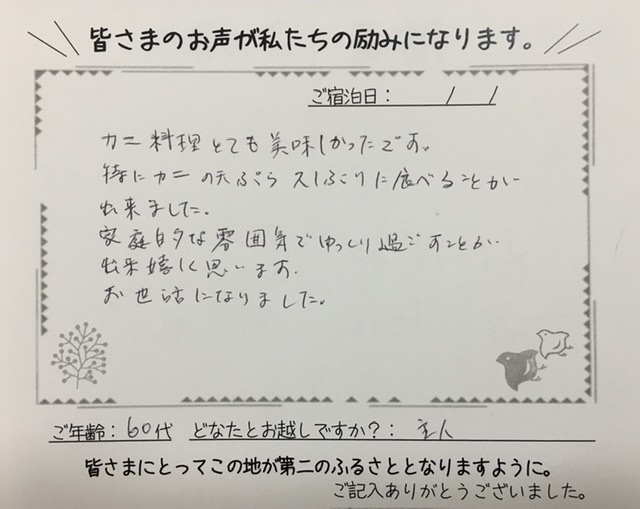 皆さまのお声が私たちの励みになります。
ご宿泊日： / /
カニ料理とても美味しかったです。
特にカニの天ぷら久しぶりに食べることが
出来ました。
家庭的な雰囲気でゆっくり過ごすことが
出来嬉しく思います。
お世話になりました。
ご年齢：60代 どなたとお越しですか？：主人
皆さまにとってこの地が第二のふるさととなりますように。
ご記入ありがとうございました。